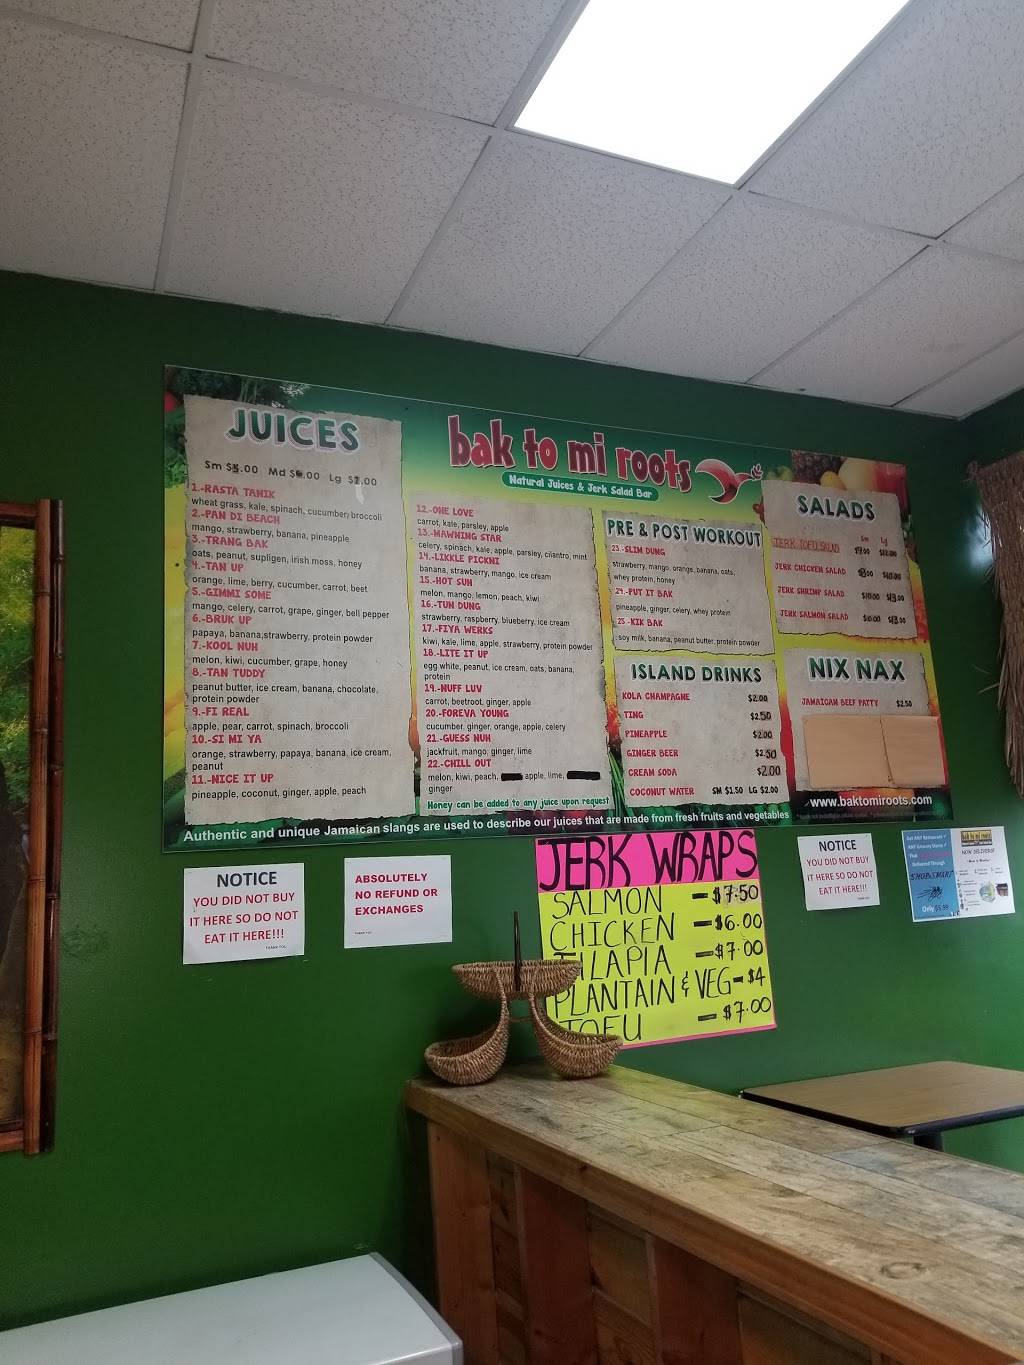 JUICES
1.-RASTA TANIK
wheat grass, kale, spinach, cucumber, broccoli
2.-PAN DI BEACH
mango, strawberry, banana, pineapple
3.-TRANG BAK
oats, peanut, supligen, irish moss, honey
4.-TAN UP
orange, lime, berry, cucumber, carrot, beet
5.-GIMMI SOME
mango, celery, carrot, grape, ginger, bell pepper
6.-BRUK UP
papaya, banana,strawberry, protein powder
7.-KOOL NUH
melon, kiwi, cucumber, grape, honey
8.-TAN TUDDY
peanut butter, ice cream, banana, chocolate,
protein powder
9.-FI REAL
apple, pear, carrot, spinach, broccoli
10.-SI MI YA
orange, strawberry, papaya, banana, ice cream,
peanut
11.-NICE IT UP
pineapple, coconut, ginger, apple, peach
bak to mi roots
Natural Juices & Jerk Salad Bar
12.-ONE LOVE
carrot, kale, parsley, apple
13.-MAWNING STAR
celery, spinach, kale, apple, parsley, cilantro, mint
14.-LIKKLE PICKNI
banana, strawberry, mango, ice cream
15.-HOT SUH
melon, mango, lemon, peach, kiwi
16.-TUN DUNG
strawberry, raspberry, blueberry, ice cream
17.-FIYA WERKS
kiwi, kale, lime, apple, strawberry, protein powder
18.-LITE IT UP
egg white, peanut, ice cream, oats, banana,
protein
19.-NUFF LUV
carrot, beetroot, ginger, apple
20.-FOREVA YOUNG
cucumber, ginger, orange, apple, celery
21.-GUESS NUH
jackfruit, mango, ginger, lime
22.-CHILL OUT
melon, kiwi, peach, apple, lime,
ginger
Honey can be added to any juice upon request
PRE & POST WORKOUT
23.-SLIM DUNG
strawberry, mango, orange, banana, oats,
whey protein, honey
24.-PUT IT BAK
pineapple, ginger, celery, whey protein
25.-KIK BAK
soy milk, banana, peanut butter, protein powder
ISLAND DRINKS
KOLA CHAMPAGNE $2.00
TING $2.50
PINEAPPLE $2.00
GINGER BEER $2.50
CREAM SODA $2.00
COCONUT WATER SM $1.50 LG $2.00
SALADS
Sm Lg
JERK TOFU SALAD
JERK CHICKEN SALAD
JERK SHRIMP SALAD
JERK SALMON SALAD
NIX NAX
JAMAICAN BEEF PATTY $2.50
www.baktomiroots.com
Authentic and unique Jamaican slangs are used to describe our juices that are made from fresh fruits and vegetables
NOTICE
YOU DID NOT BUY
IT HERE SO DO NOT
EAT IT HERE!!!
THANK YOU
ABSOLUTELY
NO REFUND OR
EXCHANGES
THANK YOU
JERK WRAPS
SALMON - $7.50
CHICKEN - $6.00
TILAPIA - $7.00
PLANTAIN & VEG - $4
TOFU - $7.00
NOTICE
YOU DID NOT BUY
IT HERE SO DO NOT
EAT IT HERE!!!